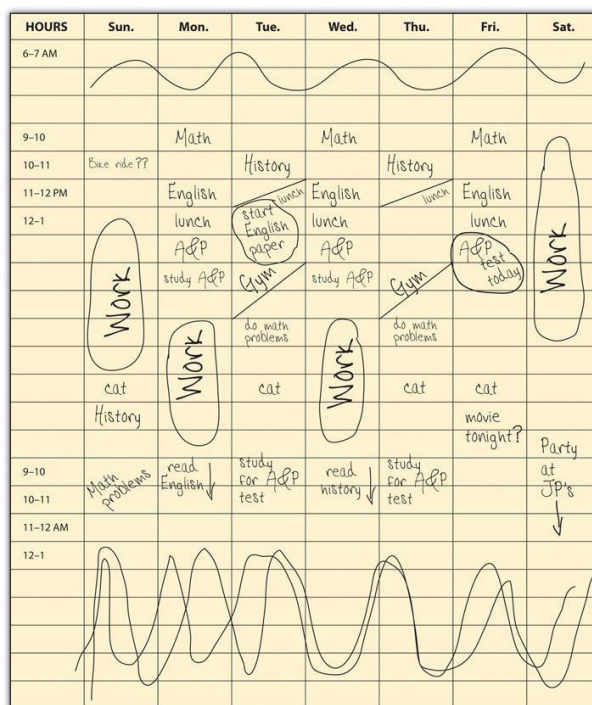 HOURS Sun. Mon. Tue. Wed. Thu. Fri. Sat.
6–7 AM
9–10 Math Math Math
10–11 Bike ride ?? History History
11–12 PM English lunch English lunch English
12–1 lunch start English paper lunch lunch
A&P A&P A&P test today
Work study A&P Gym study A&P Gym Work
do math problems do math problems
Work Work
cat cat cat cat
History movie tonight?
Party at JP's
9–10 Math problems read English study for A&P test read history study for A&P test
10–11
11–12 AM
12–1